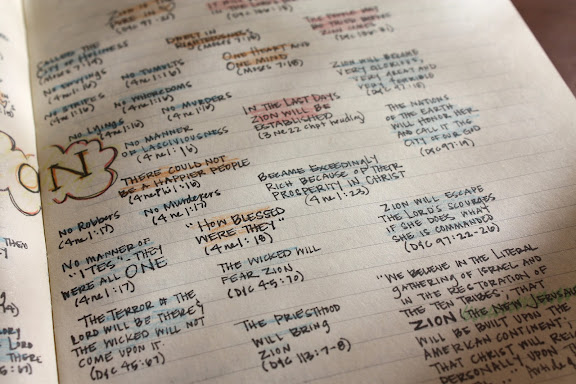 CALLED THE
CITY OF HOLINESS
(MOSES 7:19)
DWELT IN
RIGHTEOUSNESS
(MOSES 7:18)
ONE HEART AND
ONE MIND
(MOSES 7:18)
NO ENVYINGS
(4 ne 1:16)
NO TUMULTS
(4 ne 1:16)
NO STRIFES
(4 ne 1:16)
NO WHOREDOMS
(4 ne 1:16)
NO LYINGS
(4 ne 1:16)
NO MURDERS
(4 ne 1:16)
NO MANNER
OF LASCIVIOUSNESS
(4 ne 1:16)
IN THE LAST DAYS
ZION WILL BE
ESTABLISHED
(3 ne 22 chpt heading)
ZION WILL BECOME
VERY GLORIOUS,
VERY GREAT AND
VERY TERRIBLE
THE NATIONS
OF THE EARTH
WILL HONOR HER
AND CALL IT THE
CITY OF OUR GOD
(D&C 97:19)
ON
THERE COULD NOT
BE A HAPPIER PEOPLE
(4 ne 1:16)
BECAME EXCEEDINGLY
RICH BECAUSE OF THEIR
PROSPERITY IN CHRIST
(4 ne 1:23)
NO ROBBERS
(4 ne 1:17)
NO MURDERERS
(4 ne 1:17)
"HOW BLESSED
WERE THEY"
(4 ne 1:18)
ZION WILL ESCAPE
THE LORD'S SCOURGES
IF SHE DOES WHAT
SHE IS COMMANDED
(D&C 97:22-26)
NO MANNER OF
"ITES" - THEY
WERE ALL ONE
(4 ne 1:17)
THE WICKED WILL
FEAR ZION
(D&C 45:70)
THE TERROR OF THE
LORD WILL BE THERE &
THE WICKED WILL NOT
COME UPON IT.
(D&C 45:67)
THE PRIESTHOOD
WILL BRING
ZION
(D&C 113:7-8)
"WE BELIEVE IN THE LITERAL
GATHERING OF ISRAEL AND
IN THE RESTORATION OF
THE TEN TRIBES; THAT
ZION (THE NEW JERUSALEM
WILL BE BUILT UPON THE
AMERICAN CONTINENT;
THAT CHRIST WILL REIGN
PERSONALLY UPON